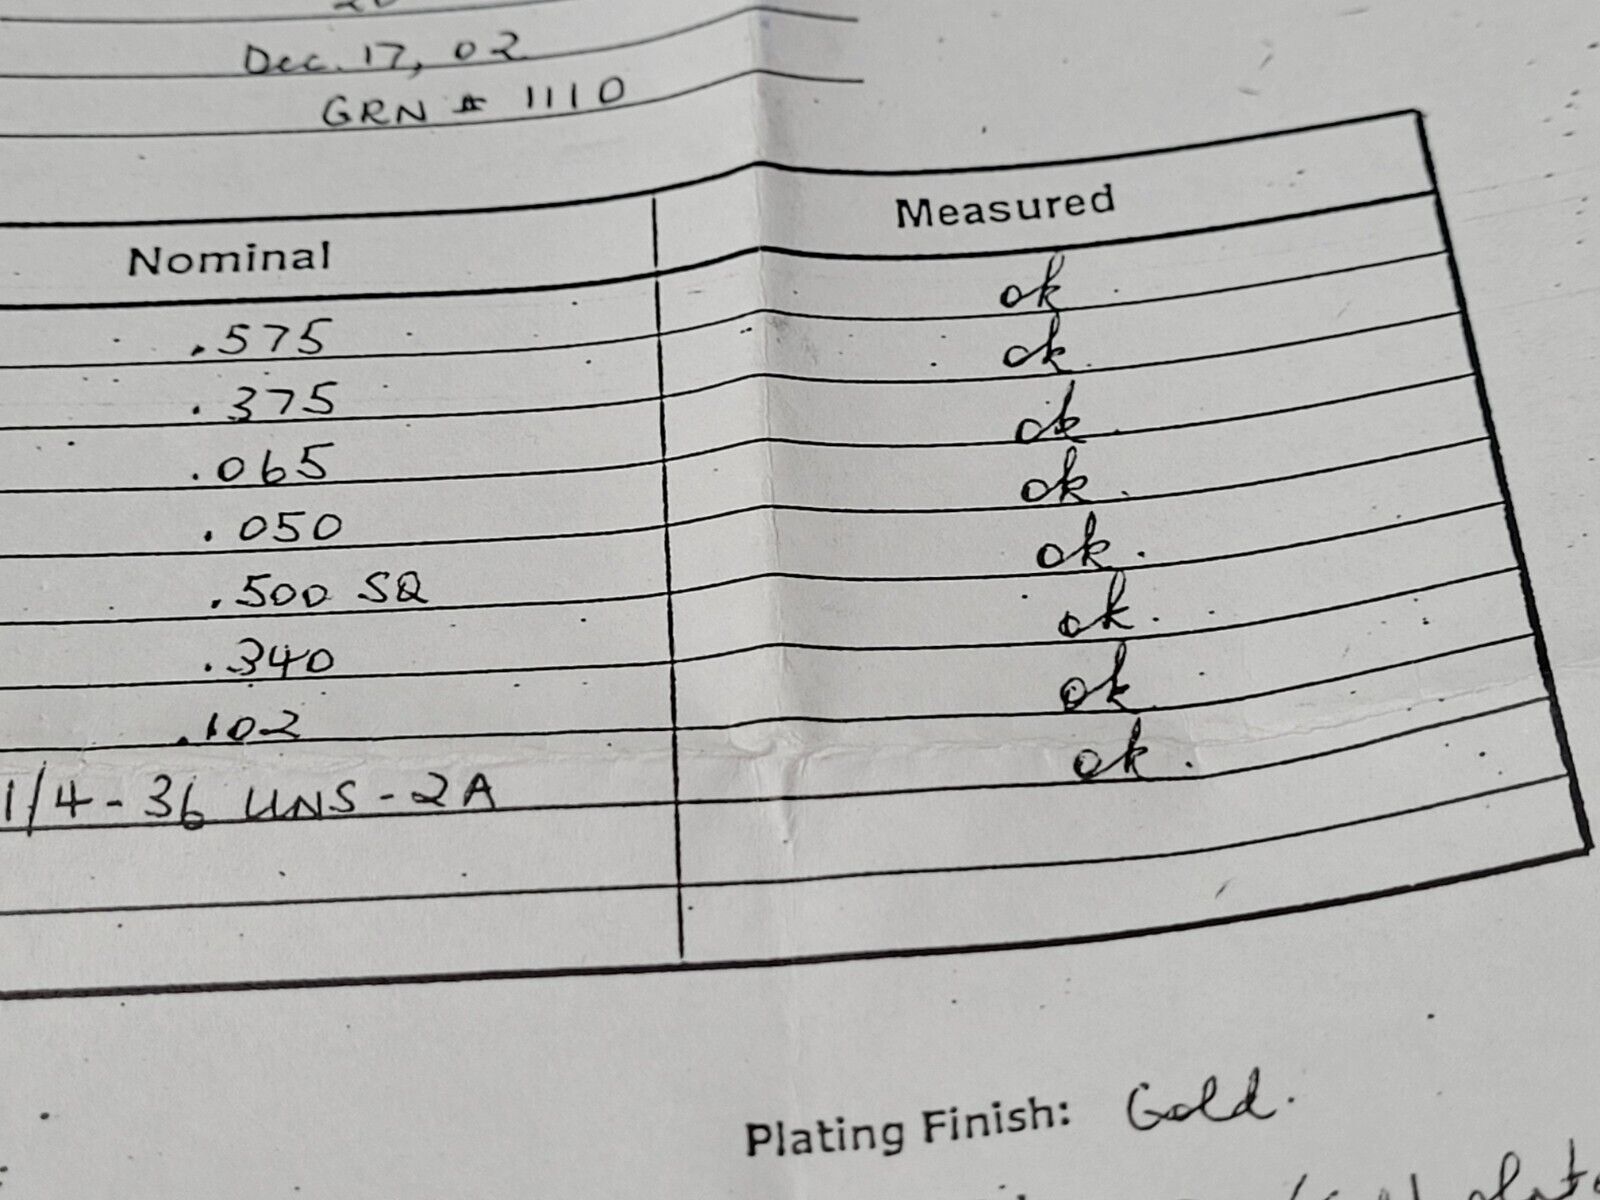 Dec. 17, 02
GRN # 1110
Nominal Measured
.575 ok
.375 ok
.065 ok
.050 ok.
.500 SQ ok.
.340 ok.
.102 ok
1/4-36 UNS-2A ok.
Plating Finish: Gold.